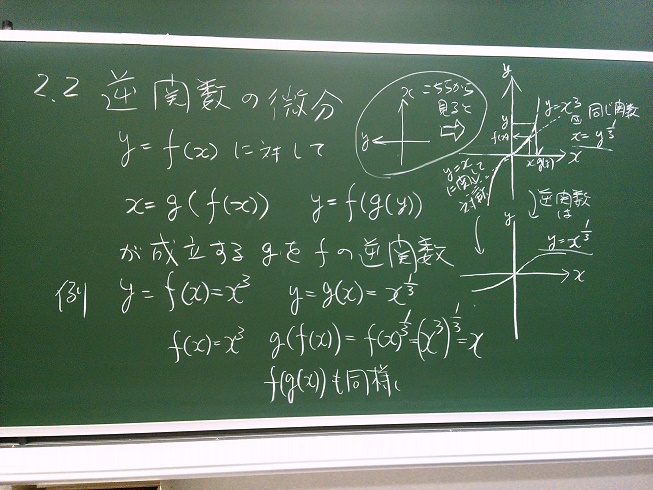 2.2 逆関数の微分
y = f(x) に対して
x = g(f(x))　y = f(g(y))
が成立する g を f の逆関数
例 y = f(x) = x^3　y = g(x) = x^{1/3}
f(x) = x^3　g(f(x)) = f(x)^{1/3} = (x^3)^{1/3} = x
f(g(x)) も同様。
x
こちらから
見ると
⇒
y
y
y = x^3
同じ関数
x = y^{1/3}
y
f(x)
x g(y) x
y = x
に関して
対称
逆関数
は
y
y = x^{1/3}
x